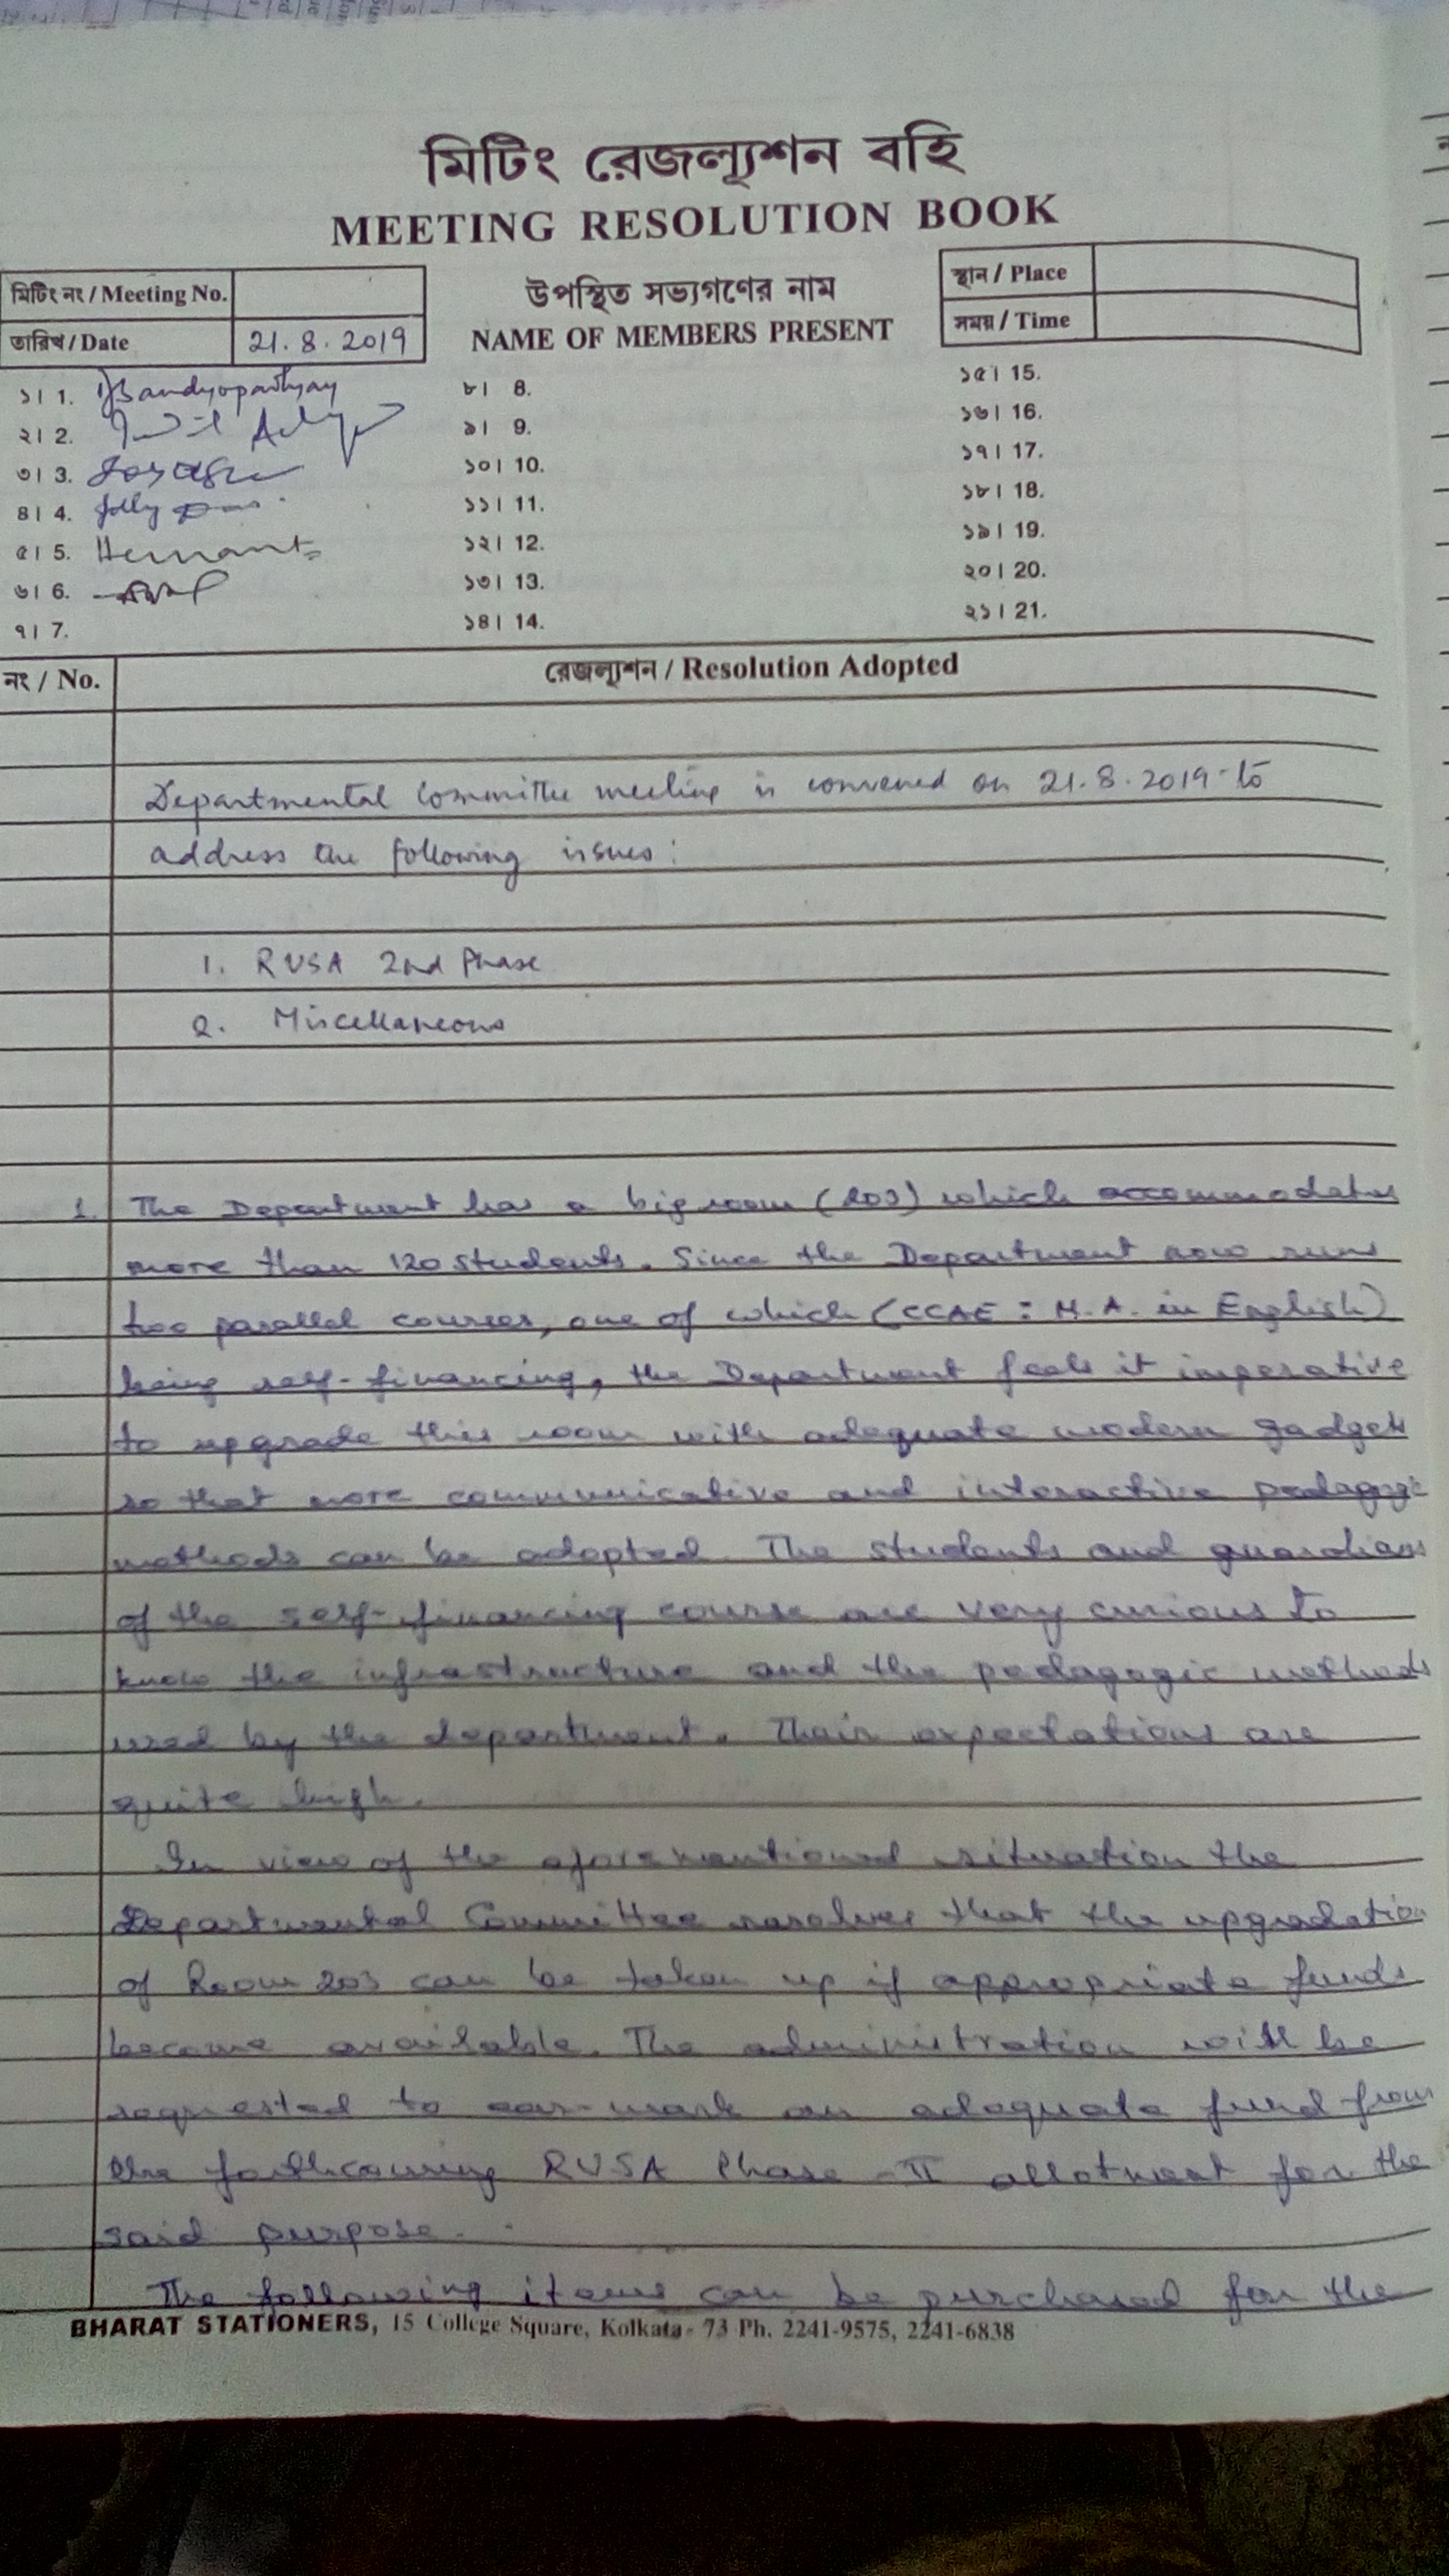 মিটিং রেজল্যুশন বহি
MEETING RESOLUTION BOOK
মিটিং নং / Meeting No.
তারিখ / Date 21.8.2019
উপস্থিত সভ্যগণের নাম
NAME OF MEMBERS PRESENT
স্থান / Place
সময় / Time
১। 1. Bandyopadhyay
২। 2.
৩। 3.
৪। 4. Jolly Das
৫। 5. Hemant
৬। 6.
৭। 7.
৮। 8.
৯। 9.
১০। 10.
১১। 11.
১২। 12.
১৩। 13.
১৪। 14.
১৫। 15.
১৬। 16.
১৭। 17.
১৮। 18.
১৯। 19.
২০। 20.
২১। 21.
নং / No. রেজল্যুশন / Resolution Adopted
Departmental Committee meeting is convened on 21.8.2019 to
address the following issues:
1. RUSA 2nd Phase
2. Miscellaneous
1. The Department has a big room (203) which accommodates
more than 120 students. Since the Department now runs
two parallel courses, one of which (CCAE : M.A. in English)
being self-financing, the Department feels it imperative
to upgrade this room with adequate modern gadgets
so that more communicative and interactive pedagogic
methods can be adopted. The students and guardians
of the self-financing course are very curious to
know the infrastructure and the pedagogic methods
used by the department. Their expectations are
quite high.
In view of the aforementioned situation the
Departmental Committee resolves that the upgradation
of Room 203 can be taken up if appropriate funds
become available. The administration will be
requested to ear-mark an adequate fund from
the forthcoming RUSA Phase-II allotment for the
said purpose.
The following items can be purchased for the
BHARAT STATIONERS, 15 College Square, Kolkata- 73 Ph. 2241-9575, 2241-6838